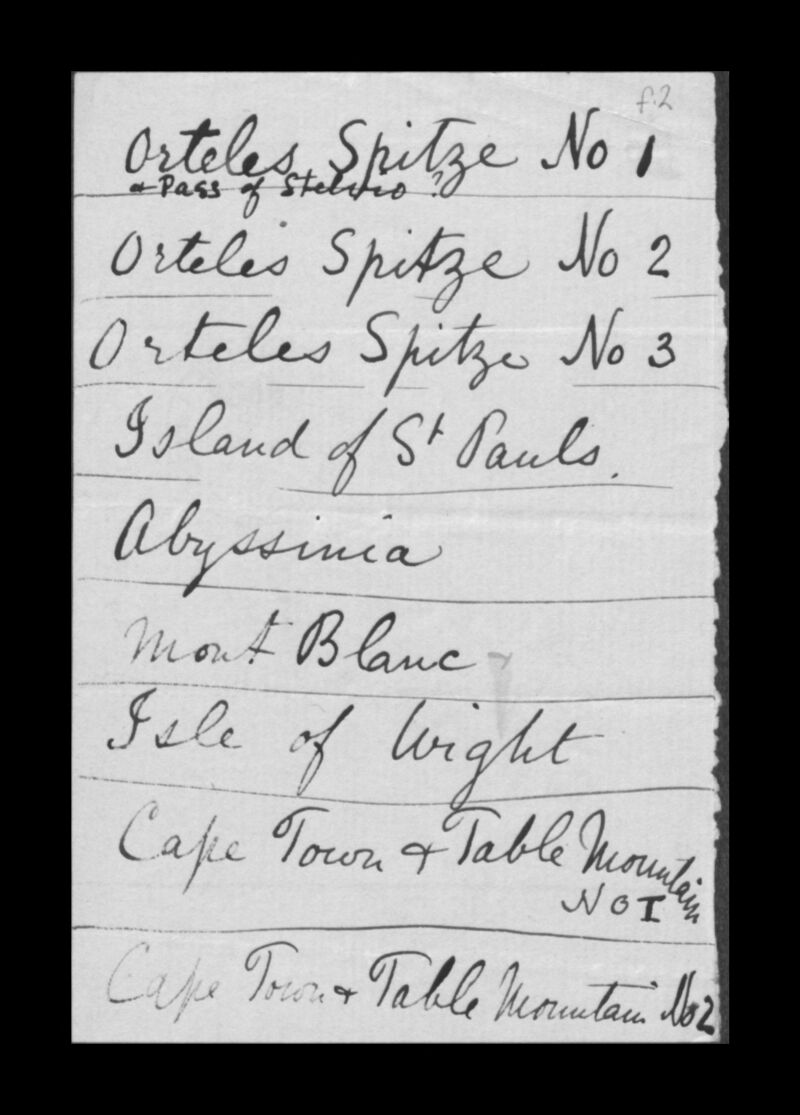 f.2
Orteles Spitze No 1
& Pass of Stelvio ?
Orteles Spitze No 2
Orteles Spitze No 3
Island of St Pauls.
Abyssinia
Mont Blanc
Isle of Wight
Cape Town & Table Mountain
No I
Cape Town & Table Mountain No 2